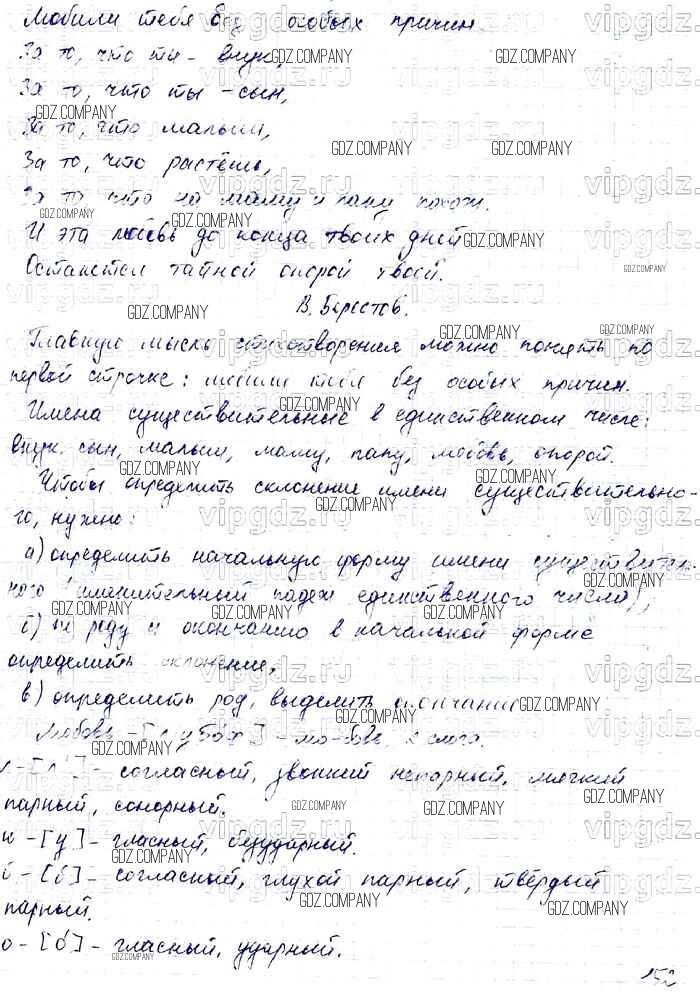 Любили тебя без особых причин
За то, что ты - внук,
За то, что ты - сын,
За то, что малыш,
За то, что растёшь,
За то что на маму и папу похож.
И эта любовь до конца твоих дней
Останется тайной опорой твоей.
В. Берестов.
Главную мысль стихотворения можно понять по
первой строчке: любили тебя без особых причин.
Имена существительные в единственном числе:
внук, сын, малыш, маму, папу, любовь, опорой.
Чтобы определить склонение имени существительно-
го, нужно:
а) определить начальную форму имени существитель-
ного (именительный падеж единственного числа),
б) по роду и окончанию в начальной форме
определить склонение,
в) определить род, выделить окончание
Любовь - - лю-бовь, 2 слога.
л - [л'] - согласный, звонкий непарный, мягкий
парный, сонорный.
ю - [у] - гласный, безударный.
б - [б] - согласный, глухой парный, твёрдый
парный.
о - [о́] - гласный, ударный.
152
GDZ.COMPANY
vipgdz.ru